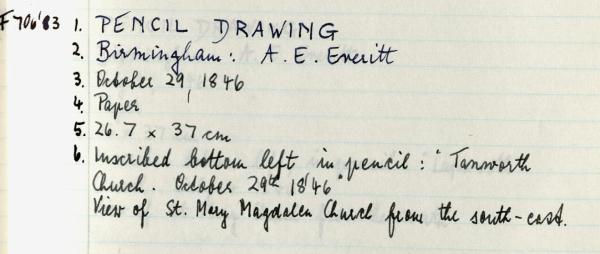 F706'83 1. PENCIL DRAWING
2. Birmingham: A. E. Everitt
3. October 29, 1846
4. Paper
5. 26.7 x 37 cm
6. Inscribed bottom left in pencil: "Tanworth
Church. October 29th 1846"
View of St. Mary Magdalen Church from the south-east.